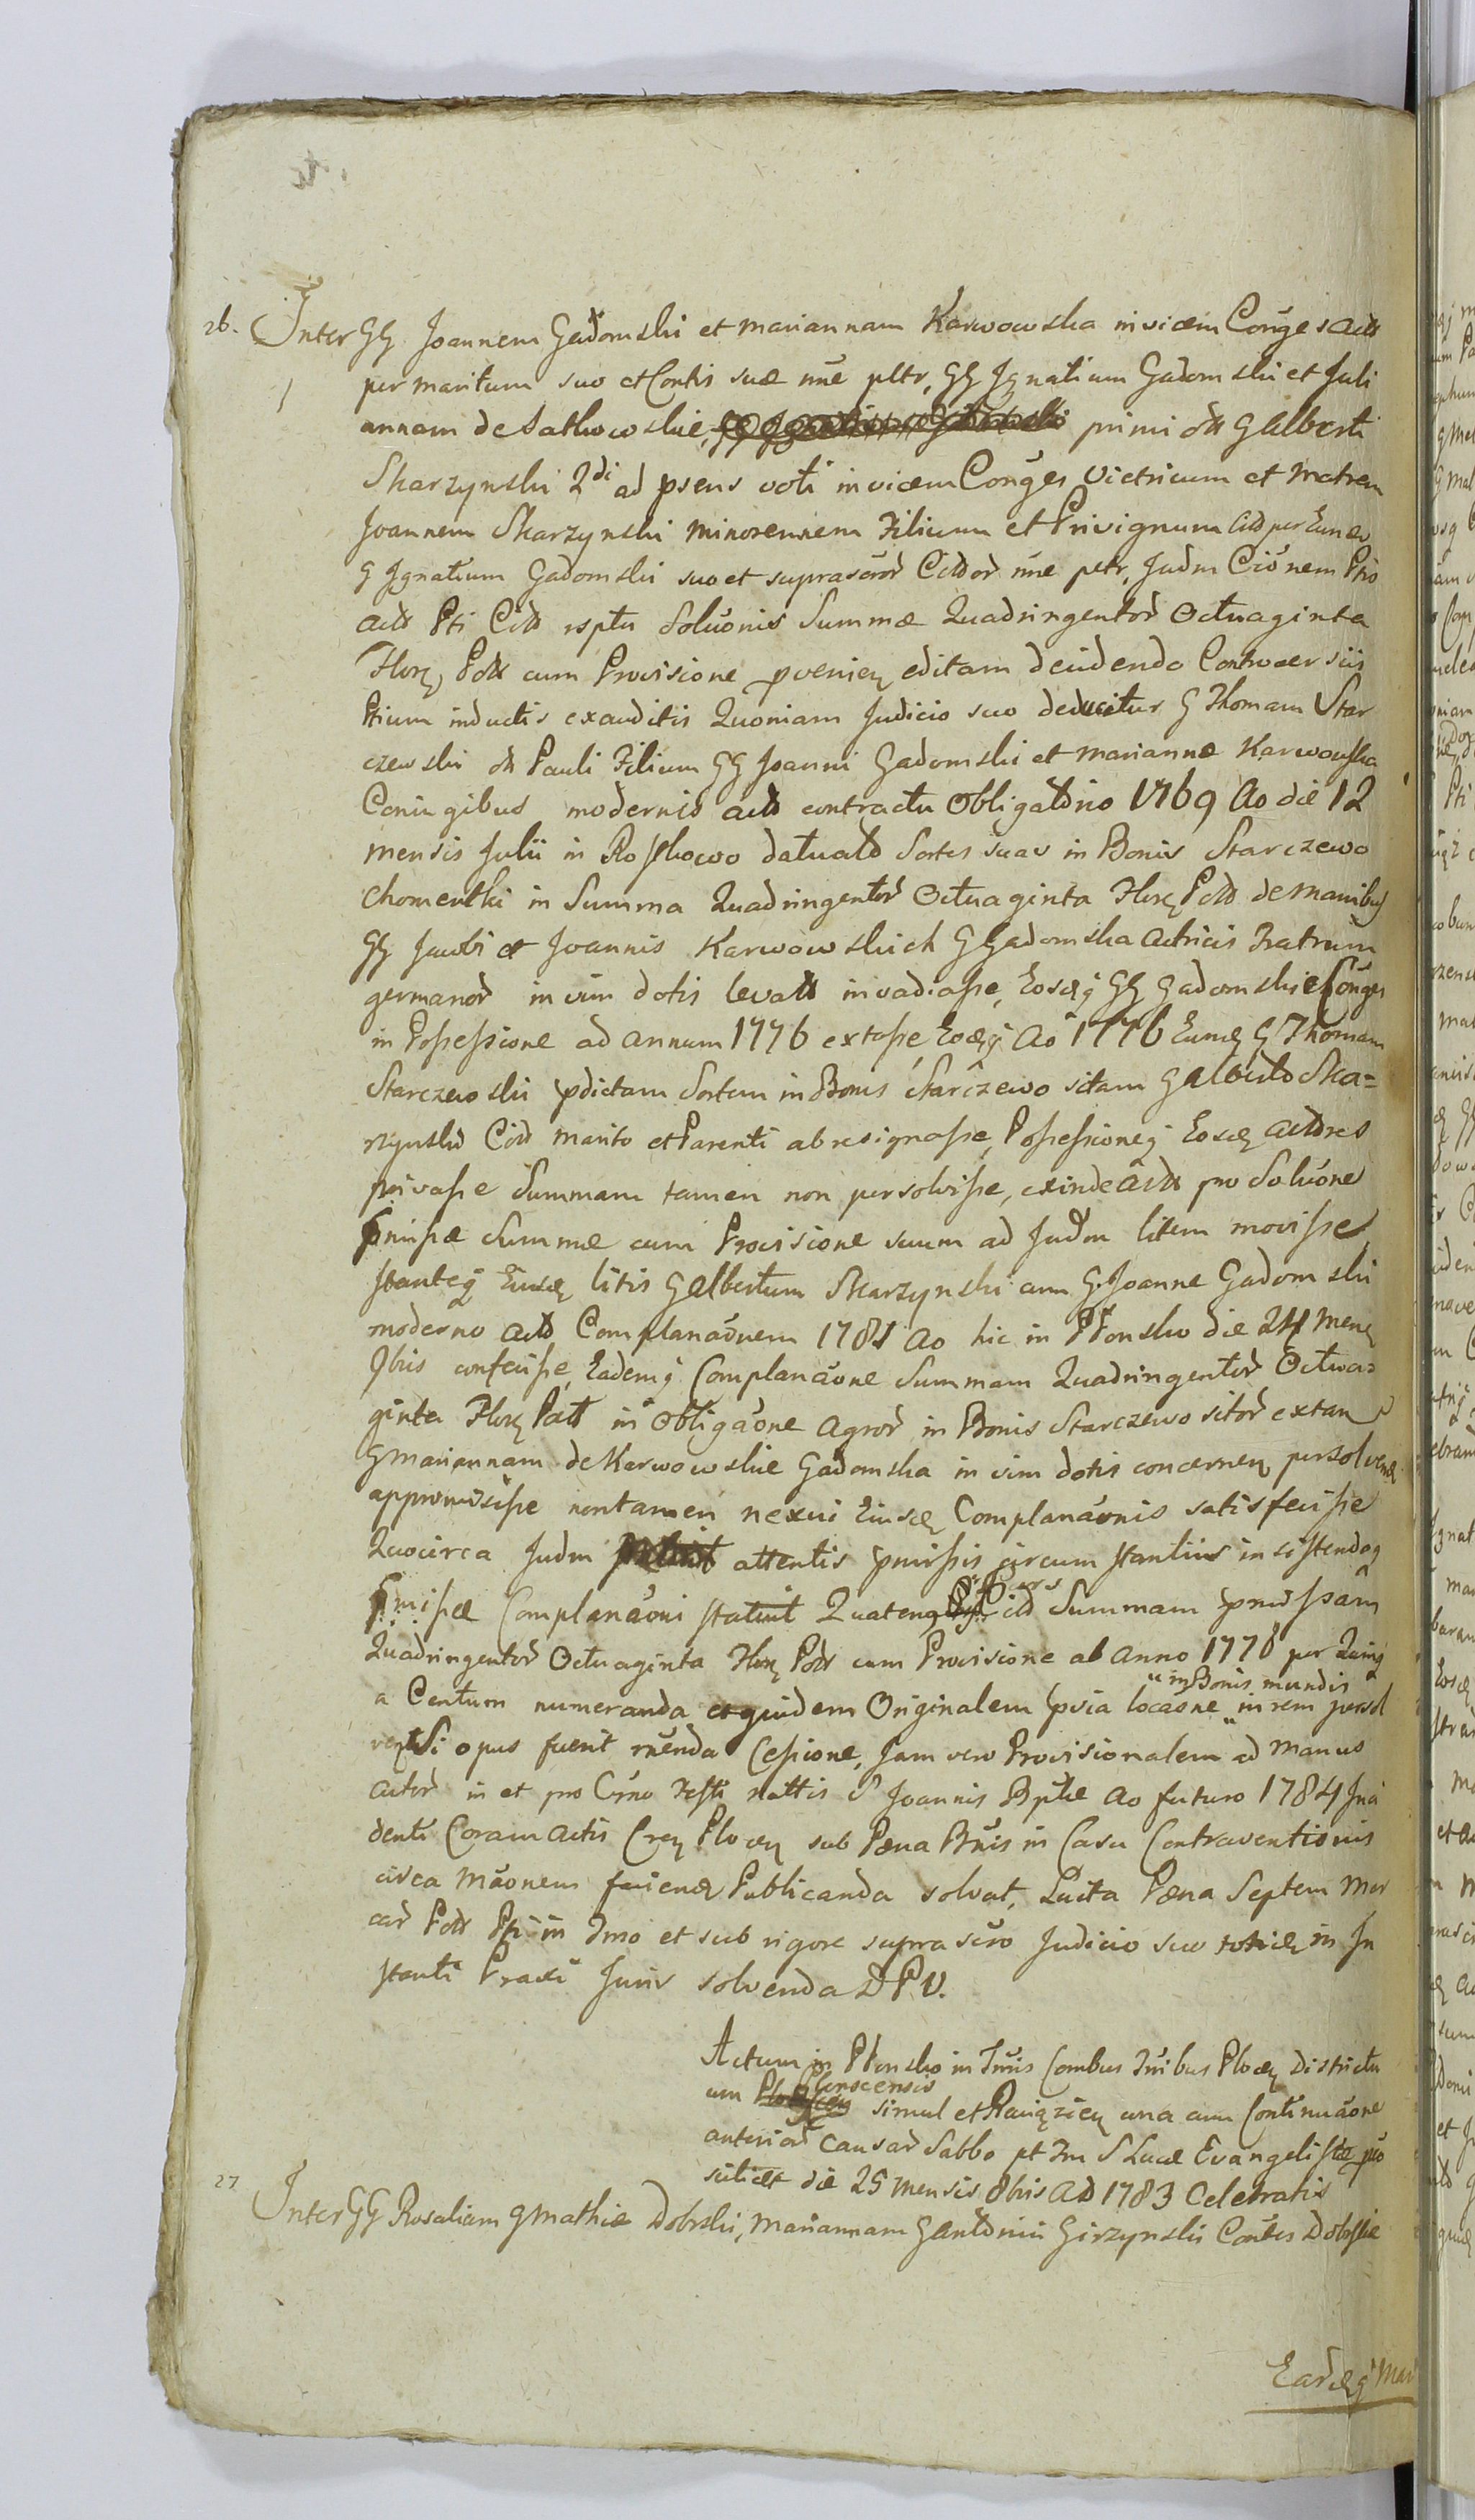 26. Inter GG Joannem Gadomski et Mariannam Karwowska invicem Conges Actt
per maritum suo et Contis suæ nne pltr, GG Ignatium Gadomski et Juli
annam de Sathowskie, primi ott G Alberti
Skarzynski 2di ad psens voti invicem Conges Victricum et Matrem
Joannem Skarzynski Minorennem Filium et Privignum Citt per Eund
G Ignatium Gadomski suo et suprascror Cittor nne pctr, Judm Cionem Pto
Actt Pti Citt rsptu Soluonis Summæ Quadringentor Octuaginta
Flor, Polt cum Provisione pvenien editam decidendo Controversiis
Ptium inductis exauditis Quoniam Judicio suo deducitur G Thomam Star
czewski ott Pauli Filium GG Joanni Gadomski et Mariannæ Karwowska
Coniugibus modernis Actt contractu Obligattrio 1769 Ao die 12
mensis Julii in Rosthowo datuatt Sortes suas in Bonis Starczewo
Chomentki in Summa Quadringentor Octuaginta Flor Polt de Manibus
GG Jacobi et Joannis Karwowskich G Gadomska Actricis Fratrum
germanor in vim dotis levatt invadiasse, Eosdq GG Gadomskie Conges
in Possessione ad annum 1776 extasse, Eodq Ao 1776 Eund G Thomam
Starczewski pdictam Sortem in Bonis Starczewo sitam G Alberto Ska=
rzynski Citt marito et Parenti abresignasse, Possessioneq Eosd Acttores
privasse Summam tamen non persolvisse, exinde Actt pro Soluone
pmissæ Summæ cum Provisione suum ad Judm litem movisse
stanteq Eiusd litis G Albertum Skarzynski cum G Joanne Gadomski
moderno Actt Complanaonem 1781 Ao hic in Płonsko die 24 Men
9bris confecisse, Eademq Complanaone Summam Quadringentor Octua=
ginta Flor Polt in Obligaone Agror in Bonis Starczewo sitor extan
G Mariannam de Karwowskie Gadomska in vim dotis concernen persolvend
appromisisse non tamen nexui Eiusd Complanaonis satisfecisse
Quocirca Judm attentis pmissis circumstantiis insistendoq
pmissæ Complanaoni statuit Quatenq Citt Summam pmissam
Quadringentor Octuaginta Flor Polt cum Provisione ab Anno 1778 per Quinq
a Centum numeranda et quidem Originalem pvia locaone "in Bonis mundis" in rem persol
ven Si opus fuerit rnenda Cessione, Jam vero Provisionalem ad Manus
Actor in et pro Crno Festi nattis S Joannis Bptæ Ao futuro 1784 Inci
denti Coram Actis Cren Plocen sub Pæna Bnis in Casu Contraventionis
circa Maonem faciend Publicanda solvat, Luita Pæna Septem Mar
car Polt Pti in Tmo et sub rigore suprascro Judicio suo totied in In
stanti Praxi Juris solvenda DPV.
Actum in Płonsko in Tmis Combus Tnibus Plocen Districtu
um Plonscensis simul et Raciązien una cum Continuaone
anterior Causar Sabbo pt Fm S Lucæ Evangelistæ pro
scilicet die 25 Mensis 8bris AD 1783 Celebratis
27 Inter GG Rosaliam G Mathiæ Dobrski, Mariannam G Antonii Girzynski Contes Dobrskie
Eardq Mar